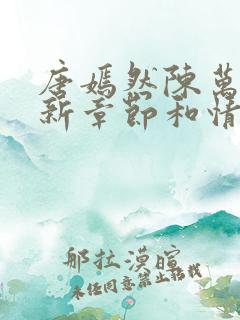 唐嫣然陳萬
新章節和情
那拉漠暄
未经同意禁止搭载